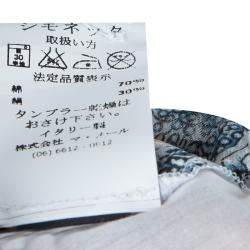 シモネッタ
取扱い方
法定品質表示
綿 70
絹 30
タンブラー乾燥は
おさけ下さい。
イタリー製
株式会社 マ・メール
(06) 6612-0612